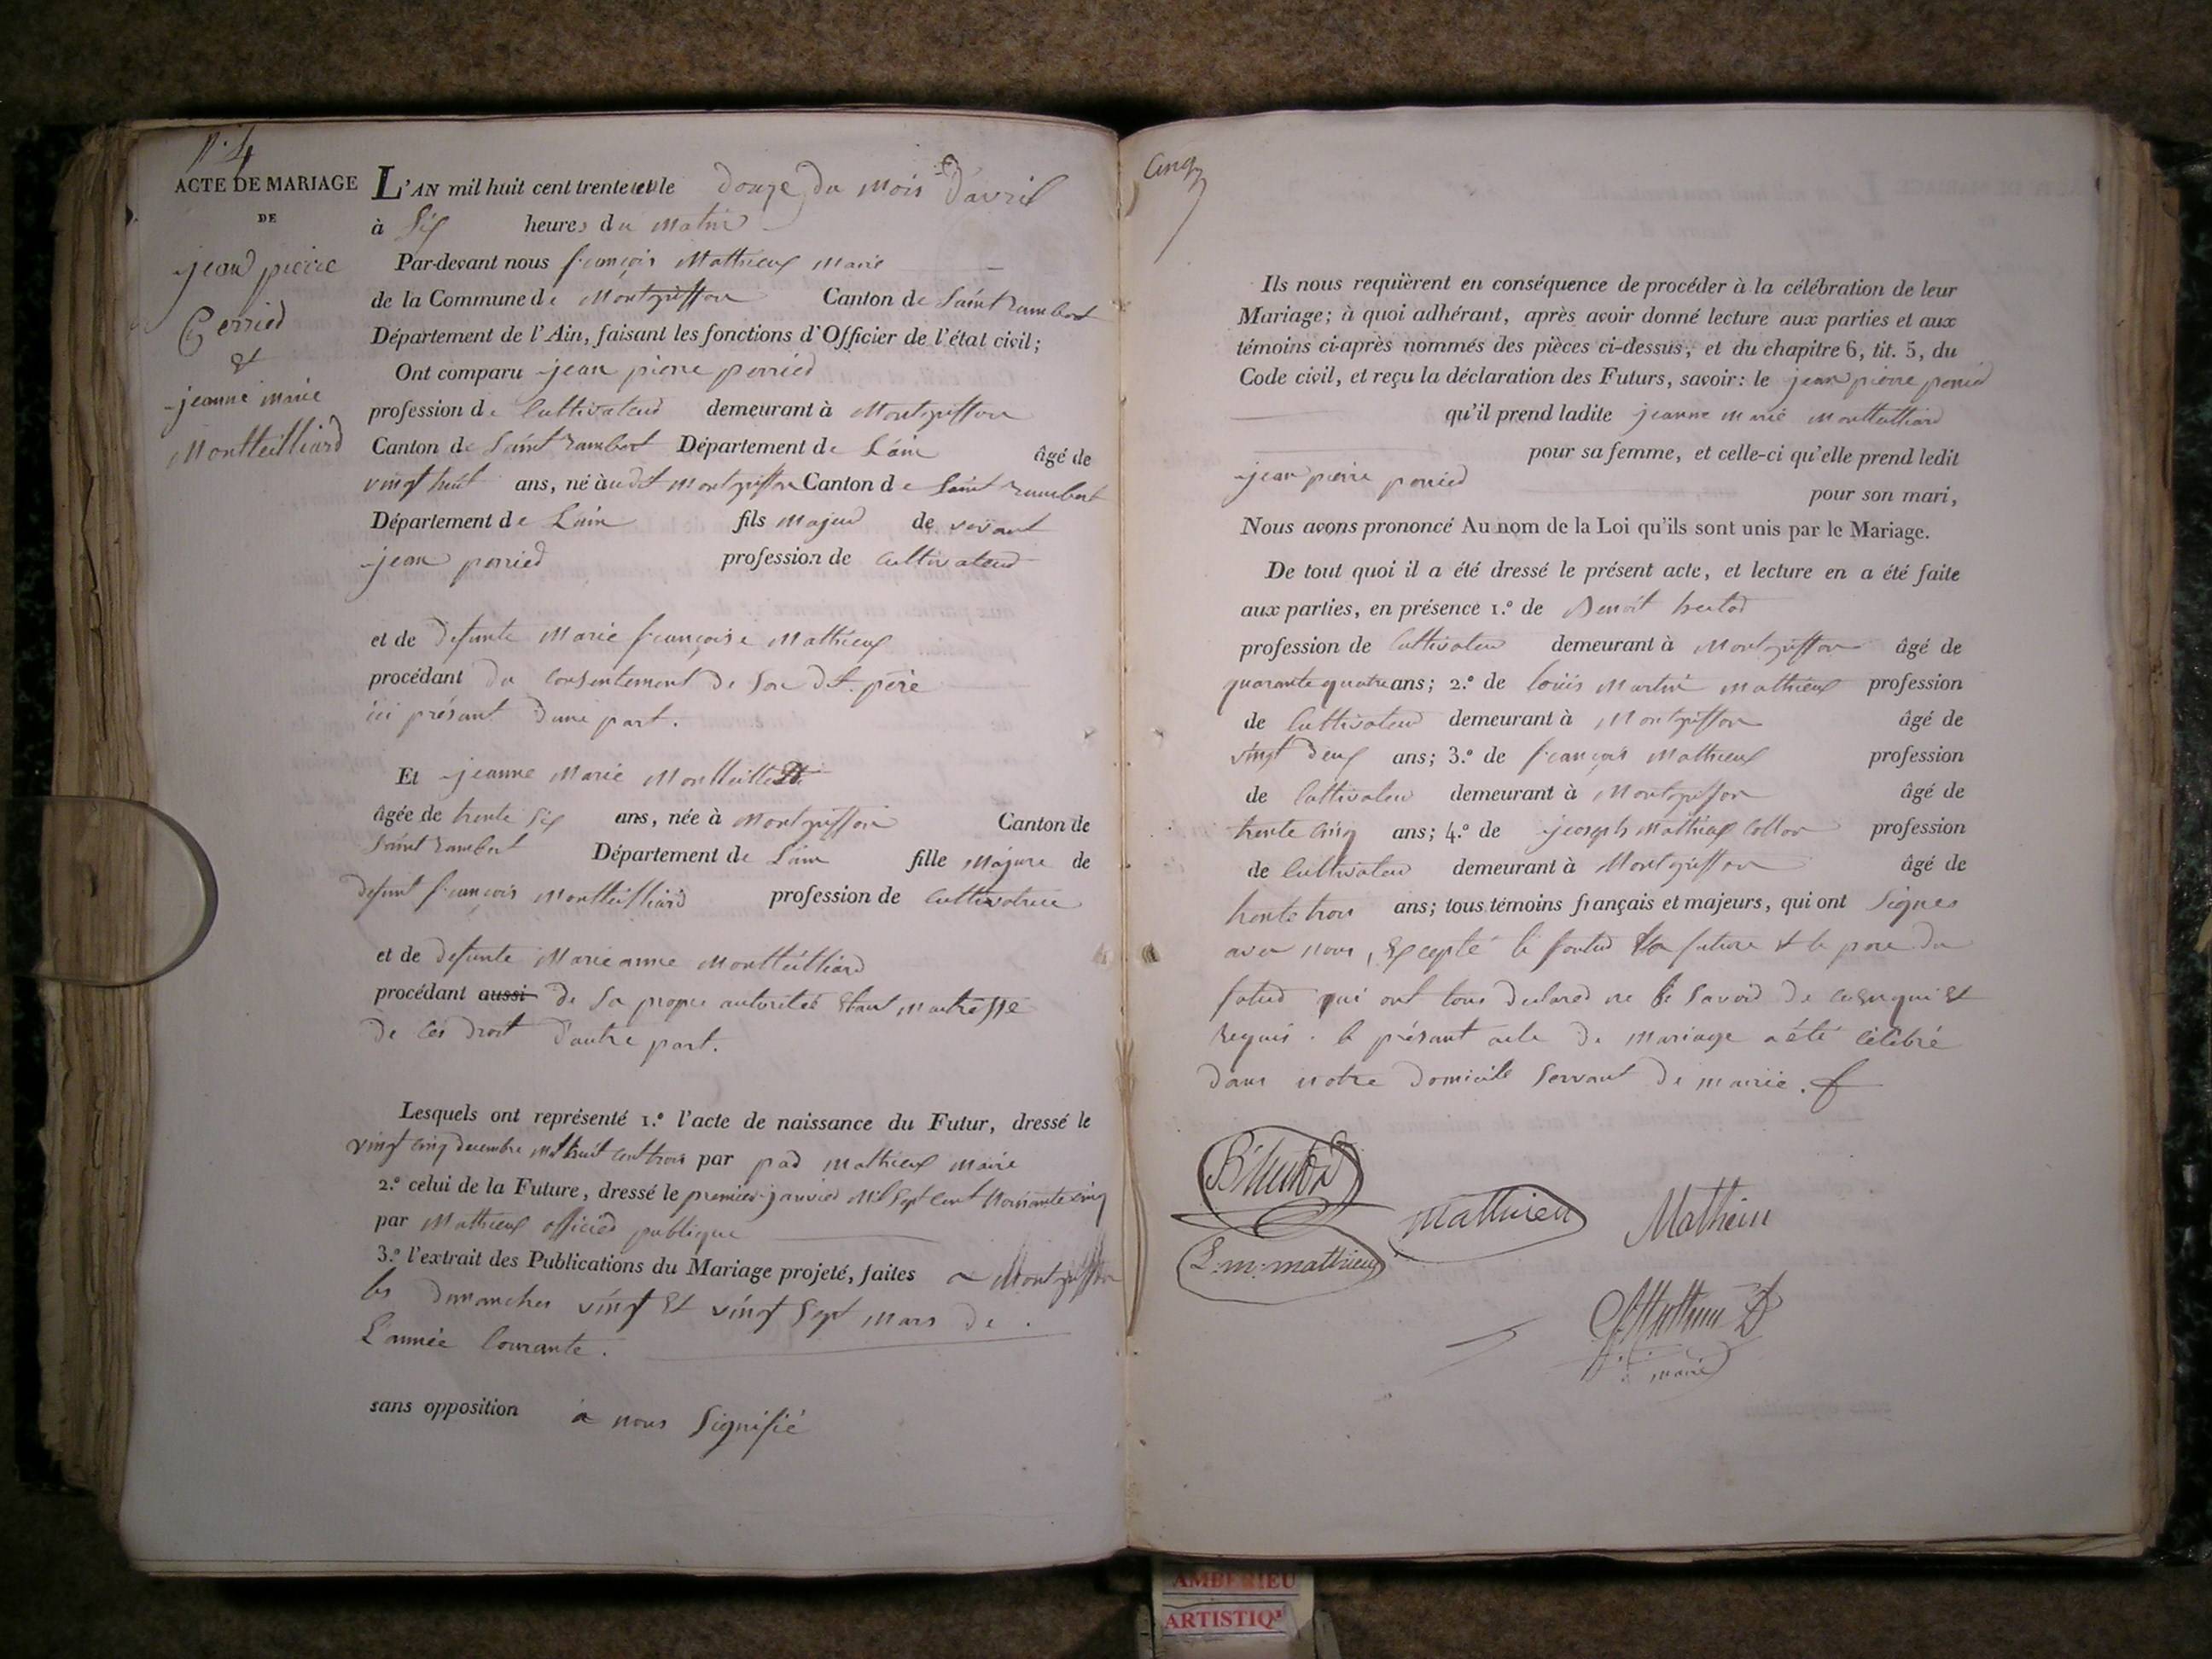 N.° 4
ACTE DE MARIAGE
DE
jean pierre
Perried
&
jeanne marie
Montteilliard
L'AN mil huit cent trente et un le douze du mois d'avril
à Six heures du Matin
Par-devant nous françois Mathieux Maire
de la Commune de Montgriffon Canton de Saint rambert
Département de l'Ain, faisant les fonctions d'Officier de l'état civil;
Ont comparu jean pierre perried
profession de Cultivateur demeurant à Montgriffon
Canton de Saint rambert Département de L'ain âgé de
vingt huit ans, né àudit montgriffon Canton de Saint rambert
Département de L'ain fils majeur de vivant
jean perried profession de cultivateur
et de defunte Marie françoise Mathieux
procédant du Consentement de Son dit père
ici présent d'une part.
Et jeanne Marie Montteilliard
âgée de trente Six ans, née à Montgriffon Canton de
Saint rambert Département de L'ain fille Majure de
defunt françois Montteilliard profession de Cultivatrice
et de defunte Marie anne Montteilliard
procédant aussi de Sa propre autorités étant maitresse
de Ces droit d'autre part.
Lesquels ont représenté 1.° l'acte de naissance du Futur, dressé le
vingt cinq decembre mil huit cent trois par Mathieux Maire
2.° celui de la Future, dressé le premier janvier Mil Sept Cent Nonante cinq
par Mathieux officier publique
3.° l'extrait des Publications du Mariage projeté, faites a Montgriffon
les dimanches vingt Et vingt Sept Mars de
L'année Courante.
sans opposition a nous Signifié
Cinq
Ils nous requièrent en conséquence de procéder à la célébration de leur
Mariage; à quoi adhérant, après avoir donné lecture aux parties et aux
témoins ci-après nommés des pièces ci-dessus, et du chapitre 6, tit. 5, du
Code civil, et reçu la déclaration des Futurs, savoir: le jean pierre perried
qu'il prend ladite jeanne marie Montteilliard
pour sa femme, et celle-ci qu'elle prend ledit
jean pierre perried
pour son mari,
Nous avons prononcé Au nom de la Loi qu'ils sont unis par le Mariage.
De tout quoi il a été dressé le présent acte, et lecture en a été faite
aux parties, en présence 1.° de Benoit
profession de Cultivateur demeurant à Montgriffon âgé de
quarante quatre ans; 2.° de louis Martin Mathieux profession
de Cultivateur demeurant à Montgriffon âgé de
vingt deux ans; 3.° de françois Mathieux profession
de Cultivateur demeurant à Montgriffon âgé de
trente cinq ans; 4.° de joseph Mathieux Collon profession
de Cultivateur demeurant à Montgriffon âgé de
trente trois ans; tous témoins français et majeurs, qui ont Signes
avec nous, Excepté le la future & le pere du
futur qui ont tous declarer ne le Savoir de Enquis Et
Requis. le présant acte de Mariage a été Célébré
dans notre domicile Servant de mairie.
Mathieu
Mathieu
L. m. mathieux
maire
AMBERIEU
ARTISTIQ